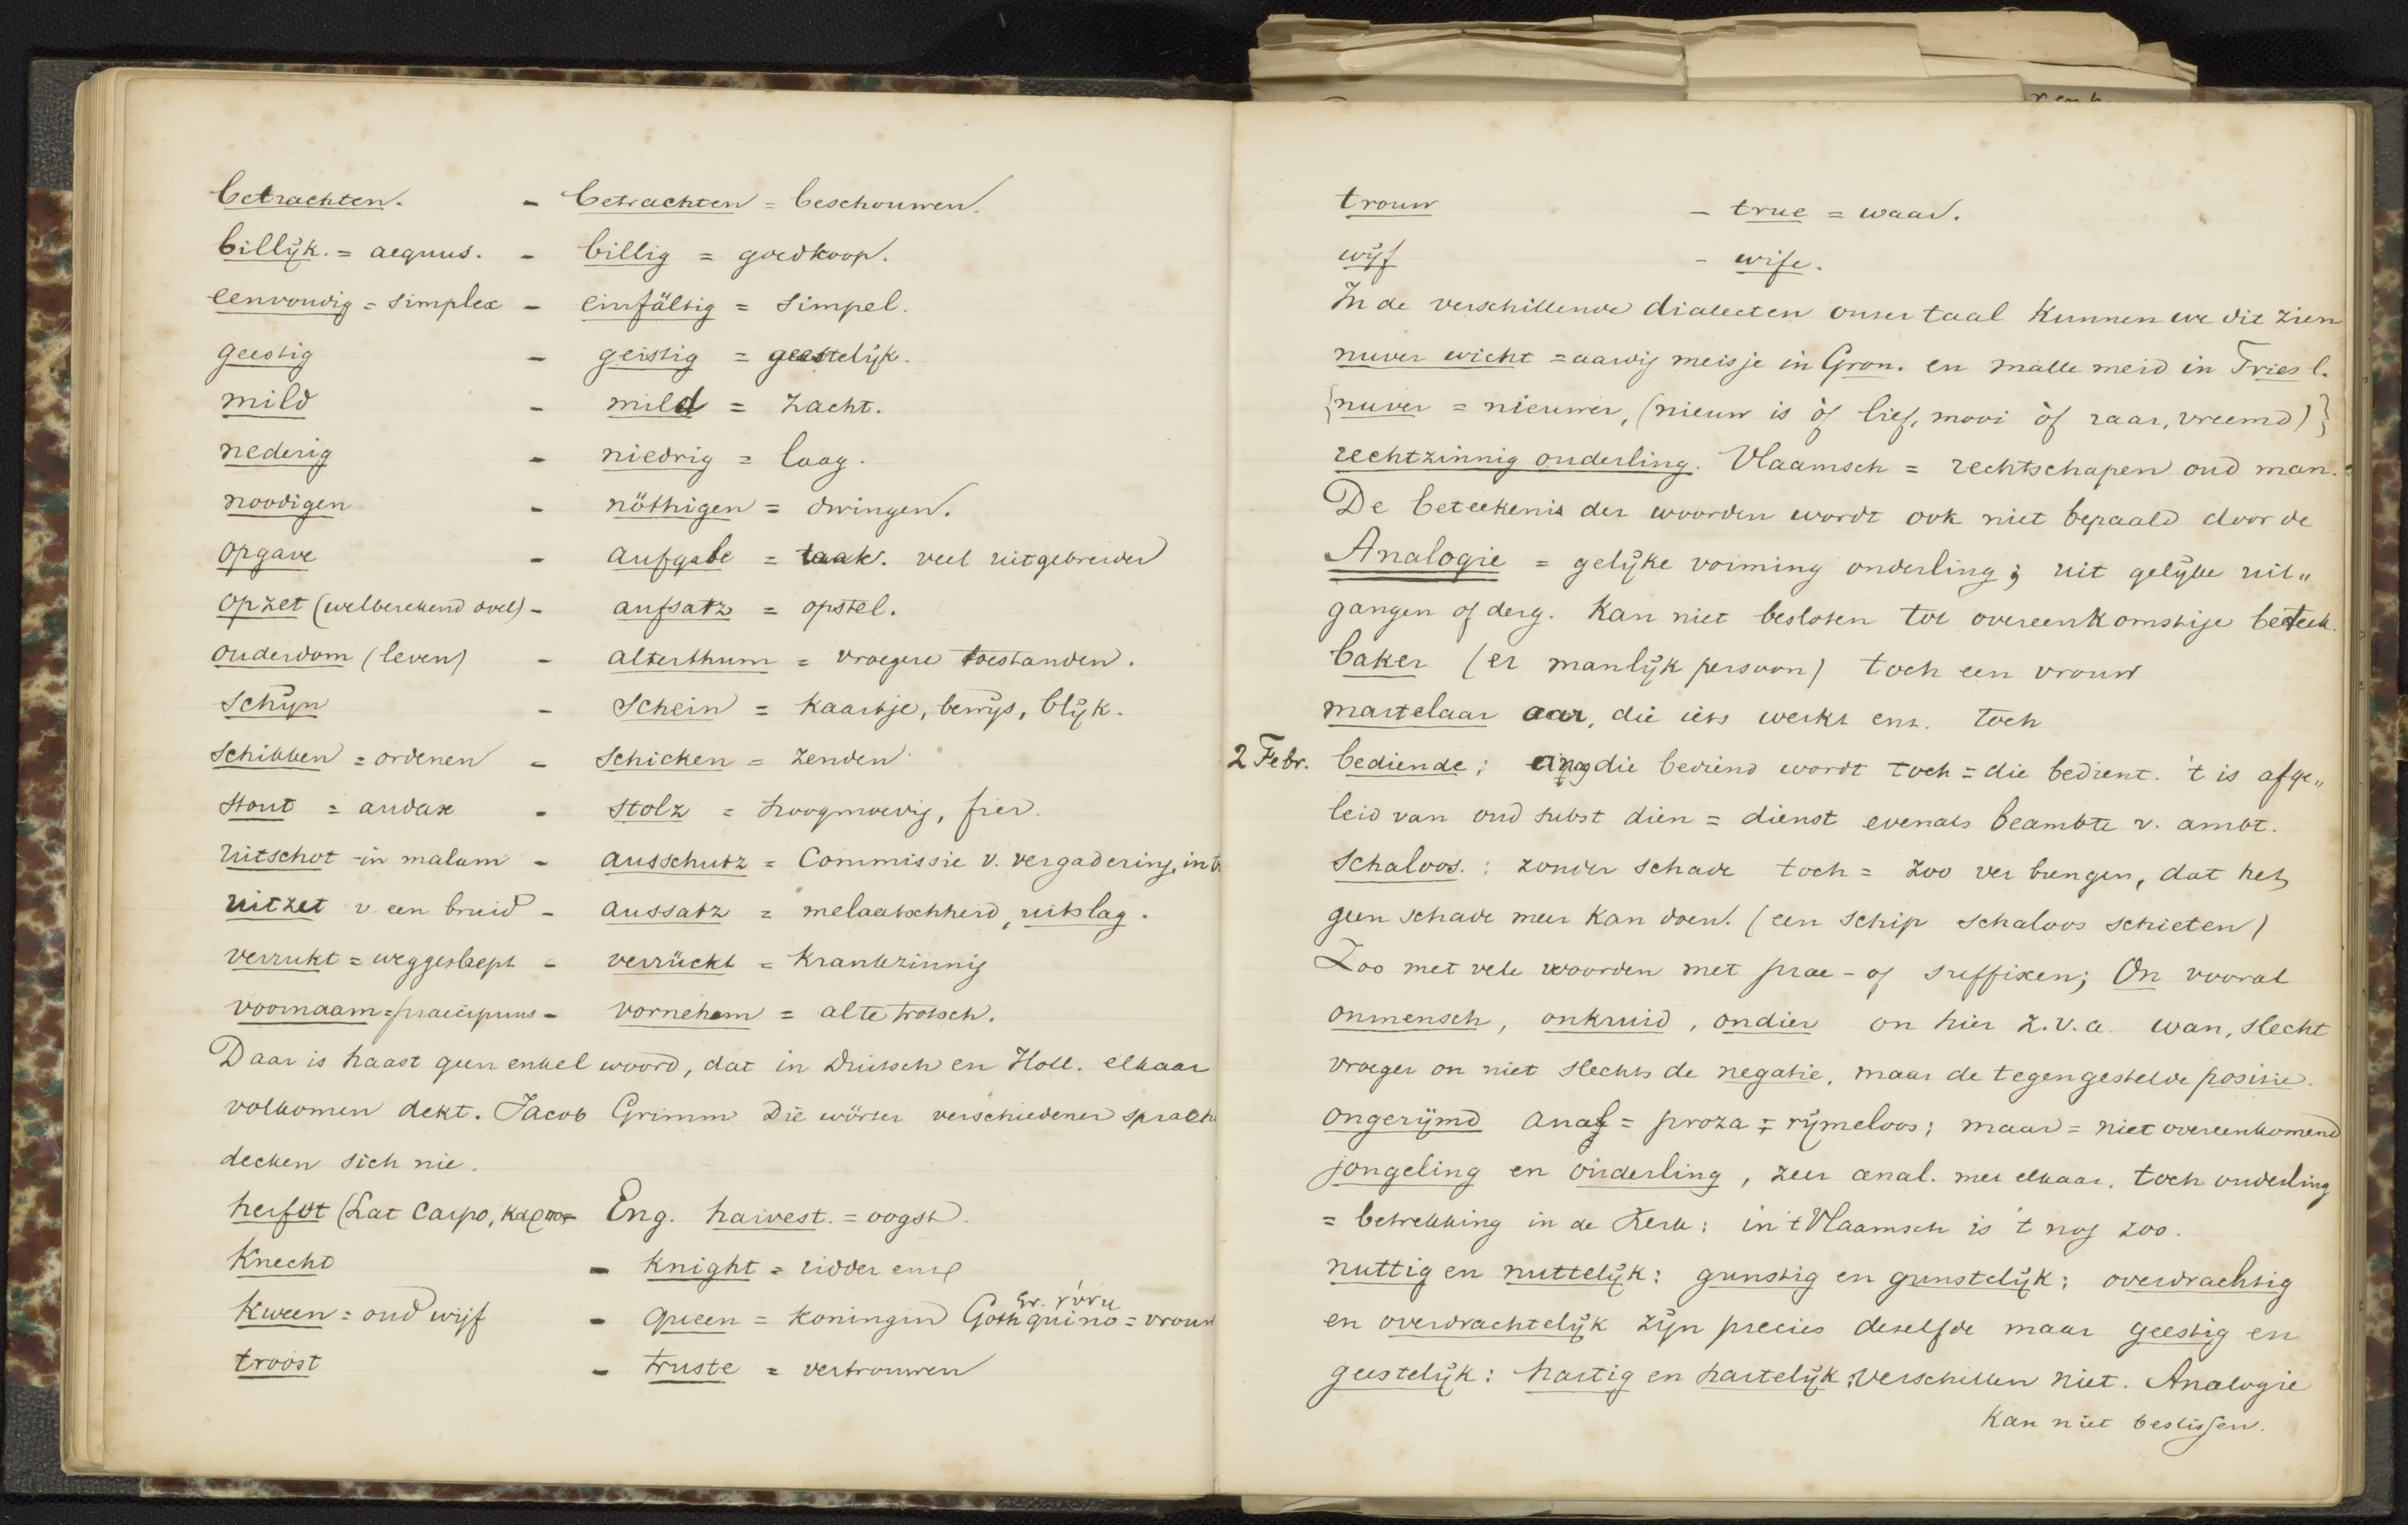 betrachten. - betrachten = beschouwen.
billijk. = aequus. - billig = goedkoop.
eenvoudig = simplex - einfältig = simpel.
geestig - geistig = geestelijk.
mild - mild = zacht.
nederig - niedrig = laag.
noodigen - nöthigen = dwingen.
opgave - aufgabe = taak. veel uitgebreider
opzet (welberekend doel) - aufsatz = opstel.
ouderdom (leven) - alterthum = vroegere toestanden.
schijn - Schein = kaartje, bewijs, blijk.
schikken = ordenen - schicken = zenden
stout = audax - stolz = hoogmoedig, fier.
uitschot in malam - ausschutz = Commissie v. vergadering, in
uitzet v een bruid - aussatz = melaatschheid, uitslag.
verrukt = weggesleept - verrückt = krankzinnig
voornaam = praecipuus - vornehem = alte trotsch.
Daar is haast geen enkel woord, dat in Duitsch en Holl. elkaar
volkomen dekt. Jacob Grimm Die wörter verschiedener sprach
decken sich nie.
herfst (Lat Carpo, καρπος - Eng. harvest. = oogst.
Knecht - Knight = ridder enz
Gr. γυνη
Kween = oud wijf - queen = koningin Goth quino = vrouw
troost - truste = vertrouwen
trouw - true = waar.
wijf - wife.
In de verschillende dialecten onser taal kunnen we dit zien
nuver wicht = aardig meisje in Gron. en malle meid in Friesl.
{nuver = nieuwer, (nieuw is òf lief, mooi òf raar, vreemd)}
rechtzinnig ouderling. Vlaamsch = rechtschapen oud man.
De beteekenis der woorden wordt ook niet bepaald door de
Analogie = gelijke vorming onderling; uit gelijke uit„
gangen of derg. kan niet besloten tot overeenkomstige beteek.
baker (er manlijk persoon) toch een vrouw
martelaar aar, die iets werkt enz. toch
2 Febr. bediende; die bediend wordt toch = die bedient. 't is afge„
leid van oud subst dien = dienst evenals beambte v. ambt.
schaloos. : zonder schade toch = zoo ver brengen, dat het
geen schade meer kan doen. (een schip schaloos schieten)
Zoo met vele woorden met prae- of suffixen; On vooral
onmensch, onkruid, ondier on hier z.v.a. wan, slecht
vroeger on niet slechts de negatie, maar de tegengestelde positie.
ongerijmd = proza = rijmeloos; maar = niet overeenkomend
jongeling en ouderling, zeer anal. met elkaar, toch ouderling
= betrekking in de Kerk; in 't Vlaamsch is 't nog zoo.
nuttig en nuttelijk; gunstig en gunstelijk; overdrachtig
en overdrachtelijk zijn precies deselfde maar geestig en
geestelijk; hartig en hartelijk; verschillen niet. Analogie
kan niet beslissen.